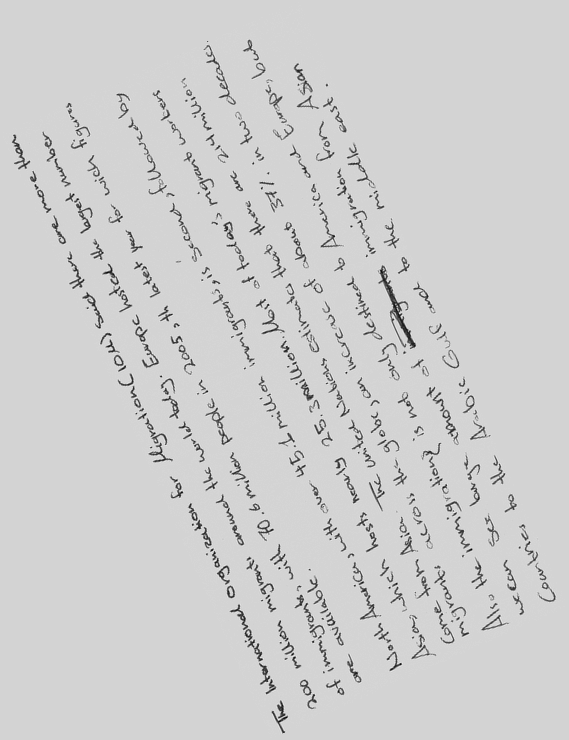 The International Organization for Migration (IOM) said there are more than
200 million migrants around the world today. Europe hosted the largest number
of immigrants, with 70.6 million people in 2005, the latest year for wich figures
are available.
North America, with over 45.1 million immigrants, is second, followed by
Asia, which hosts nearly 25.3 million. Most of today's migrant workers
come from Asia. The United Nations estimates that there are 214 million
migrants across the globe, an increase of about 37% in two decades.
Also the immigration is not only destined to America and Europe, but
we can see large amount of immigration from Asian
Countries to the Arabic Gulf and to the middle east.